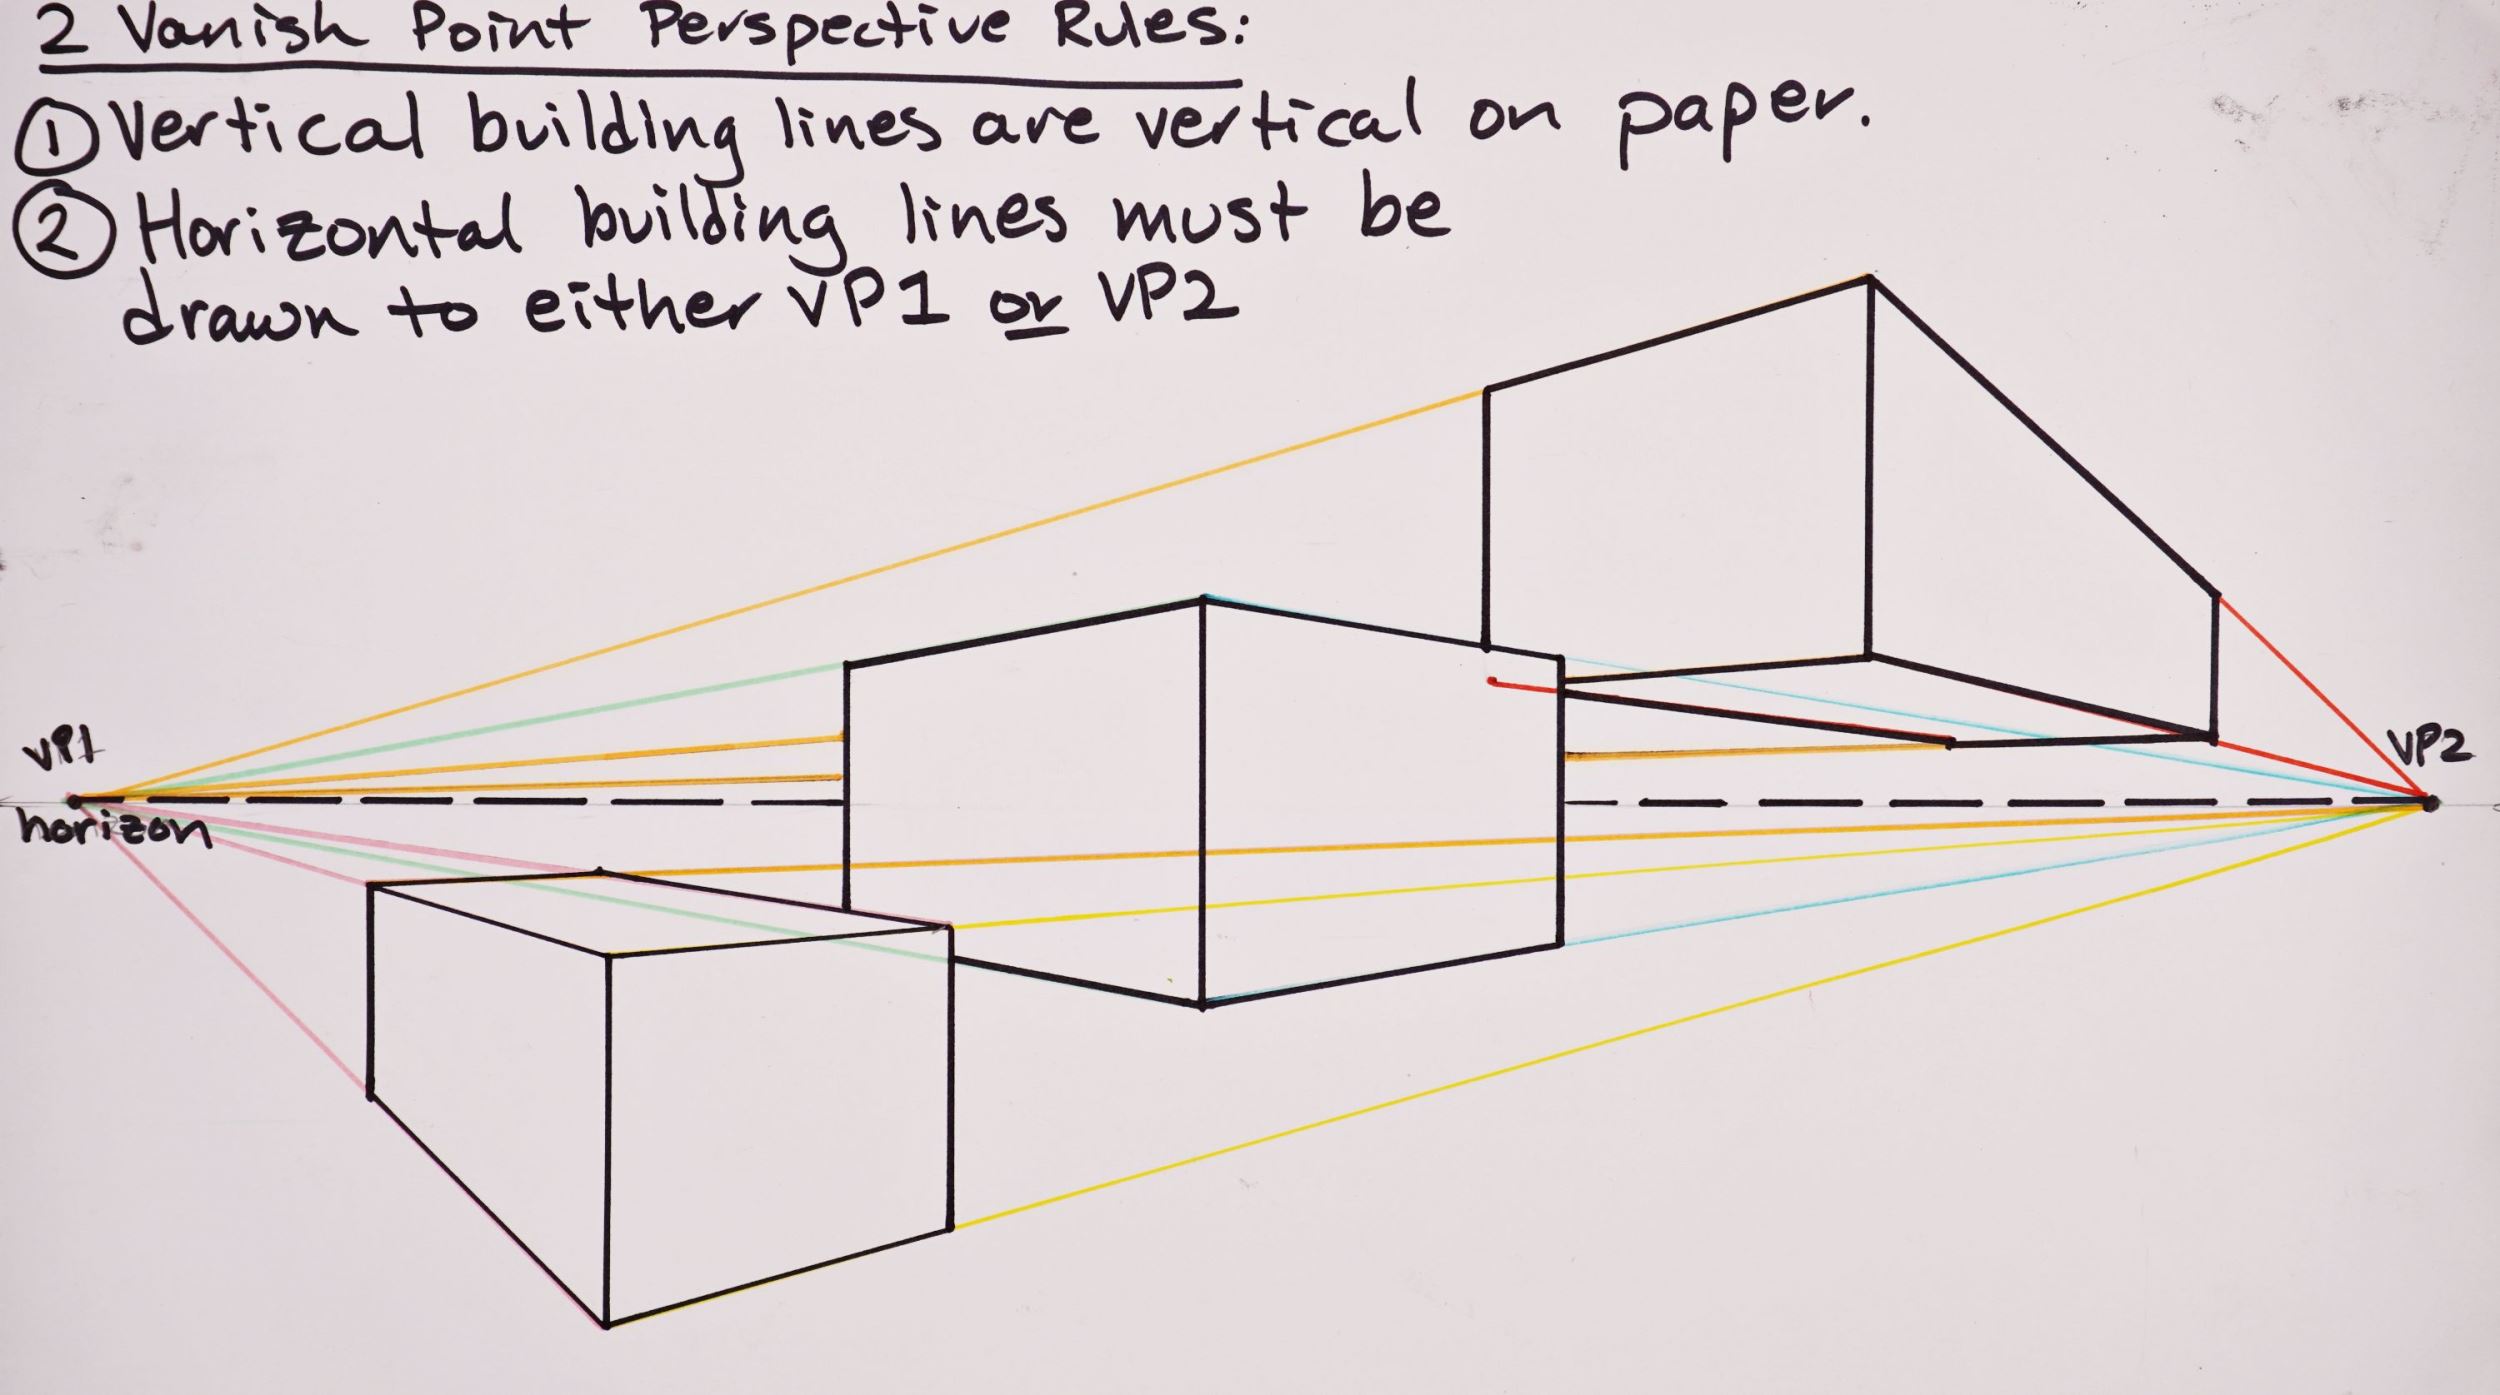 2 Vanish Point Perspective Rules:
① Vertical building lines are vertical on paper.
② Horizontal building lines must be
drawn to either VP1 or VP2
VP1
VP2
horizon